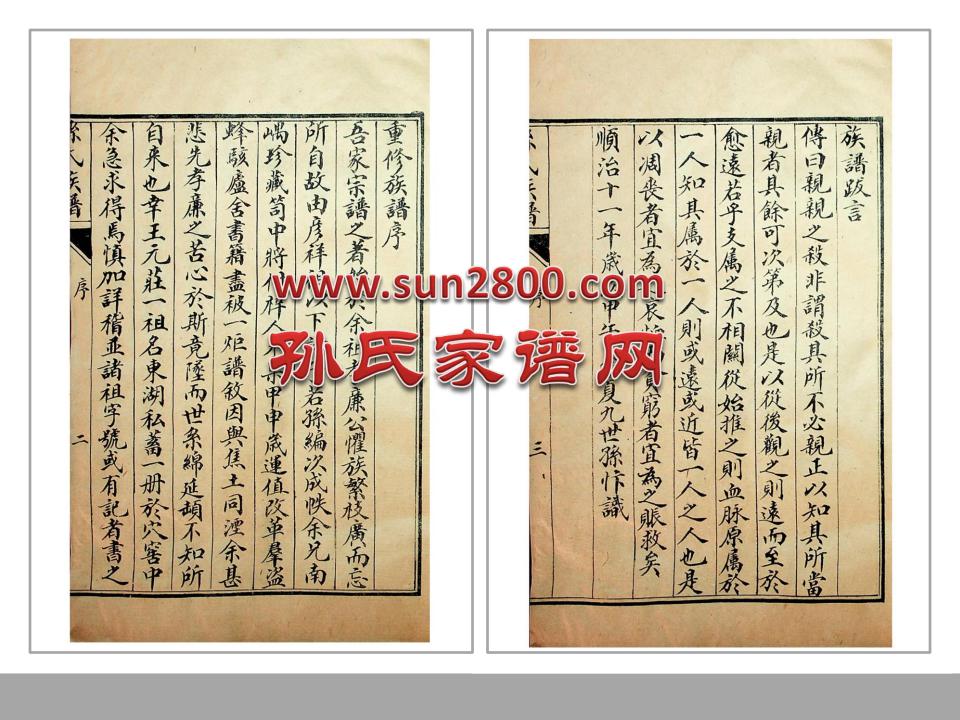 重修族譜序
吾家宗譜之著始於余祖孝廉公懼族繁枝廣而忘
所自故由彦祥祖以下若孫編次成帙余兄南
嵎珍藏笥中將甲申歲運值改革羣盜
蜂駭廬舍書籍盡被一炬譜敘因與焦土同湮余甚
悲先孝廉之苦心於斯竟墜而世系綿延頡不知所
自来也幸王元莊一祖名東湖私蓄一册於穴窖中
余急求得焉慎加詳稽並諸祖字號或有記者書之
孫氏族譜
序
二
族譜跋言
傳曰親親之殺非謂殺其所不必親正以知其所當
親者其餘可次第及也是以從後觀之則遠而至於
愈遠若乎支属之不相關從始推之則血脉原属於
一人知其属於一人則或遠或近皆一人之人也是
以凋丧者宜為哀貧窮者宜為之賑救矣
順治十一年歲甲午夏九世孫忭識
氏族譜
序
三
www.sun2800.com
孙氏家谱网